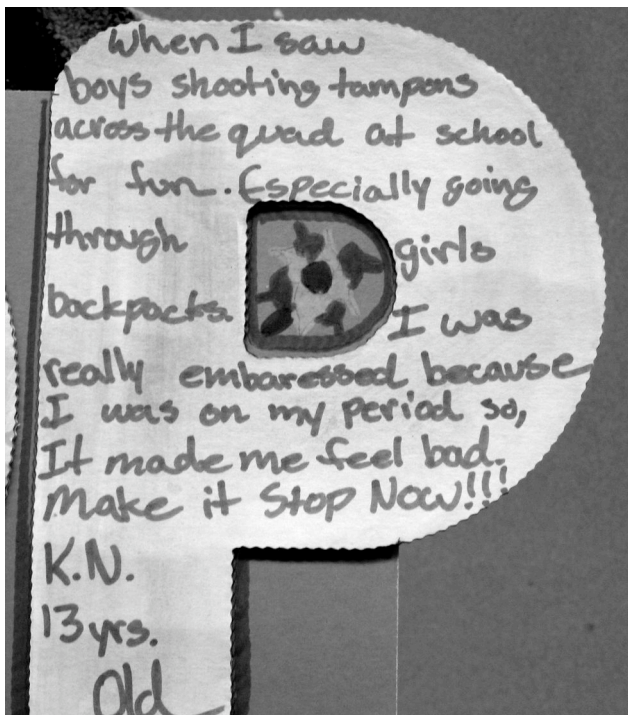 When I saw
boys shooting tampons
across the quad at school
for fun. Especially going
through girls
backpacks. I was
really embaressed because
I was on my period so,
It made me feel bad.
Make it Stop Now!!!
K.N.
13 yrs.
Old